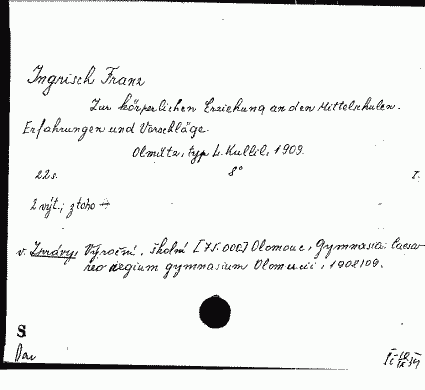 Ingrisch Franz
Zur körperlichen Erziehung an den Mittelschulen.
Erfahrungen und Vorschläge.
Olmütz, typ L. Kullil, 1909.
22 s. 8° I.
2 výt.; z toho
v. Zprávy, Výroční, školní [75.006] Olomouc, Gymnasia: Caesa-
reo regium gymnasium Olomucii, 1908/09.
S
Dar